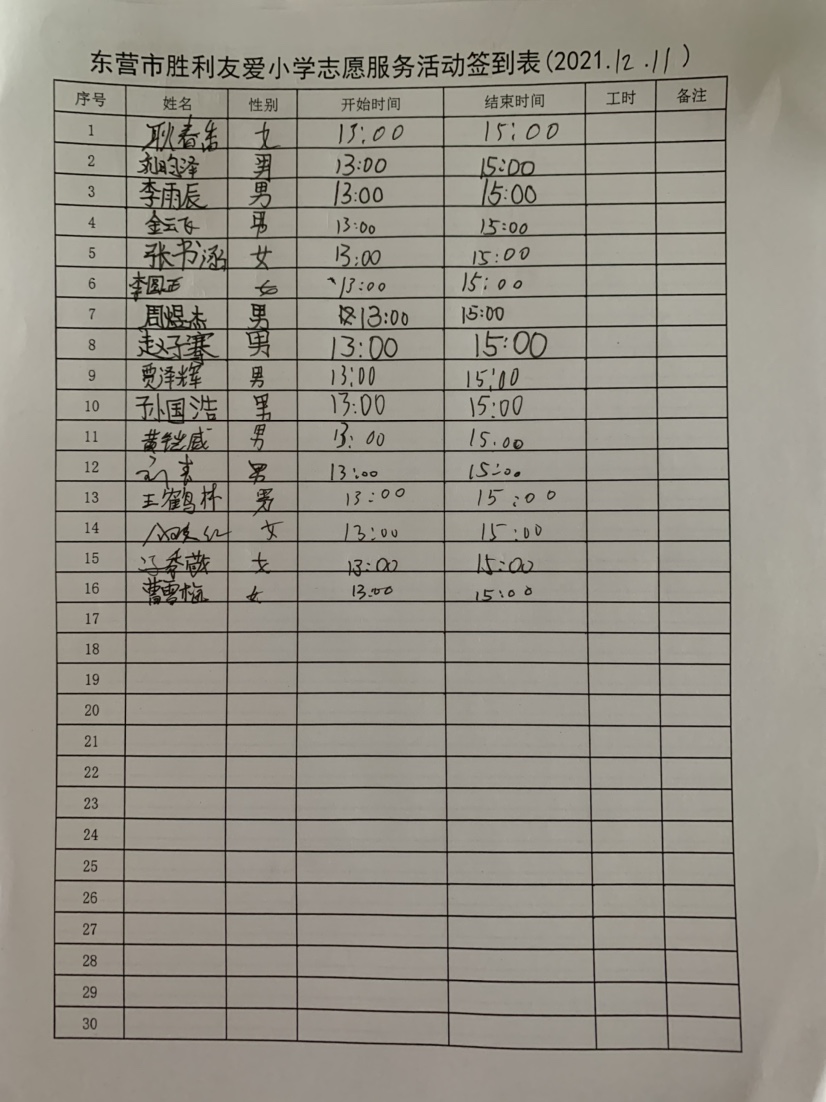 东营市胜利友爱小学志愿服务活动签到表(2021.12.11)
序号 姓名 性别 开始时间 结束时间 工时 备注
1 耿春 女 13:00 15:00
2 刘昀泽 男 13:00 15:00
3 李雨辰 男 13:00 15:00
4 金云飞 男 13:00 15:00
5 张书涵 女 13:00 15:00
6 李 女 13:00 15:00
7 周煜杰 男 13:00 15:00
8 赵子骞 男 13:00 15:00
9 贾泽辉 男 13:00 15:00
10 孙国浩 男 13:00 15:00
11 黄铠威 男 13:00 15:00
12 男 13:00 15:00
13 王鹤林 男 13:00 15:00
14 女 13:00 15:00
15 女 13:00 15:00
16 曹雪梅 女 13:00 15:00
17
18
19
20
21
22
23
24
25
26
27
28
29
30